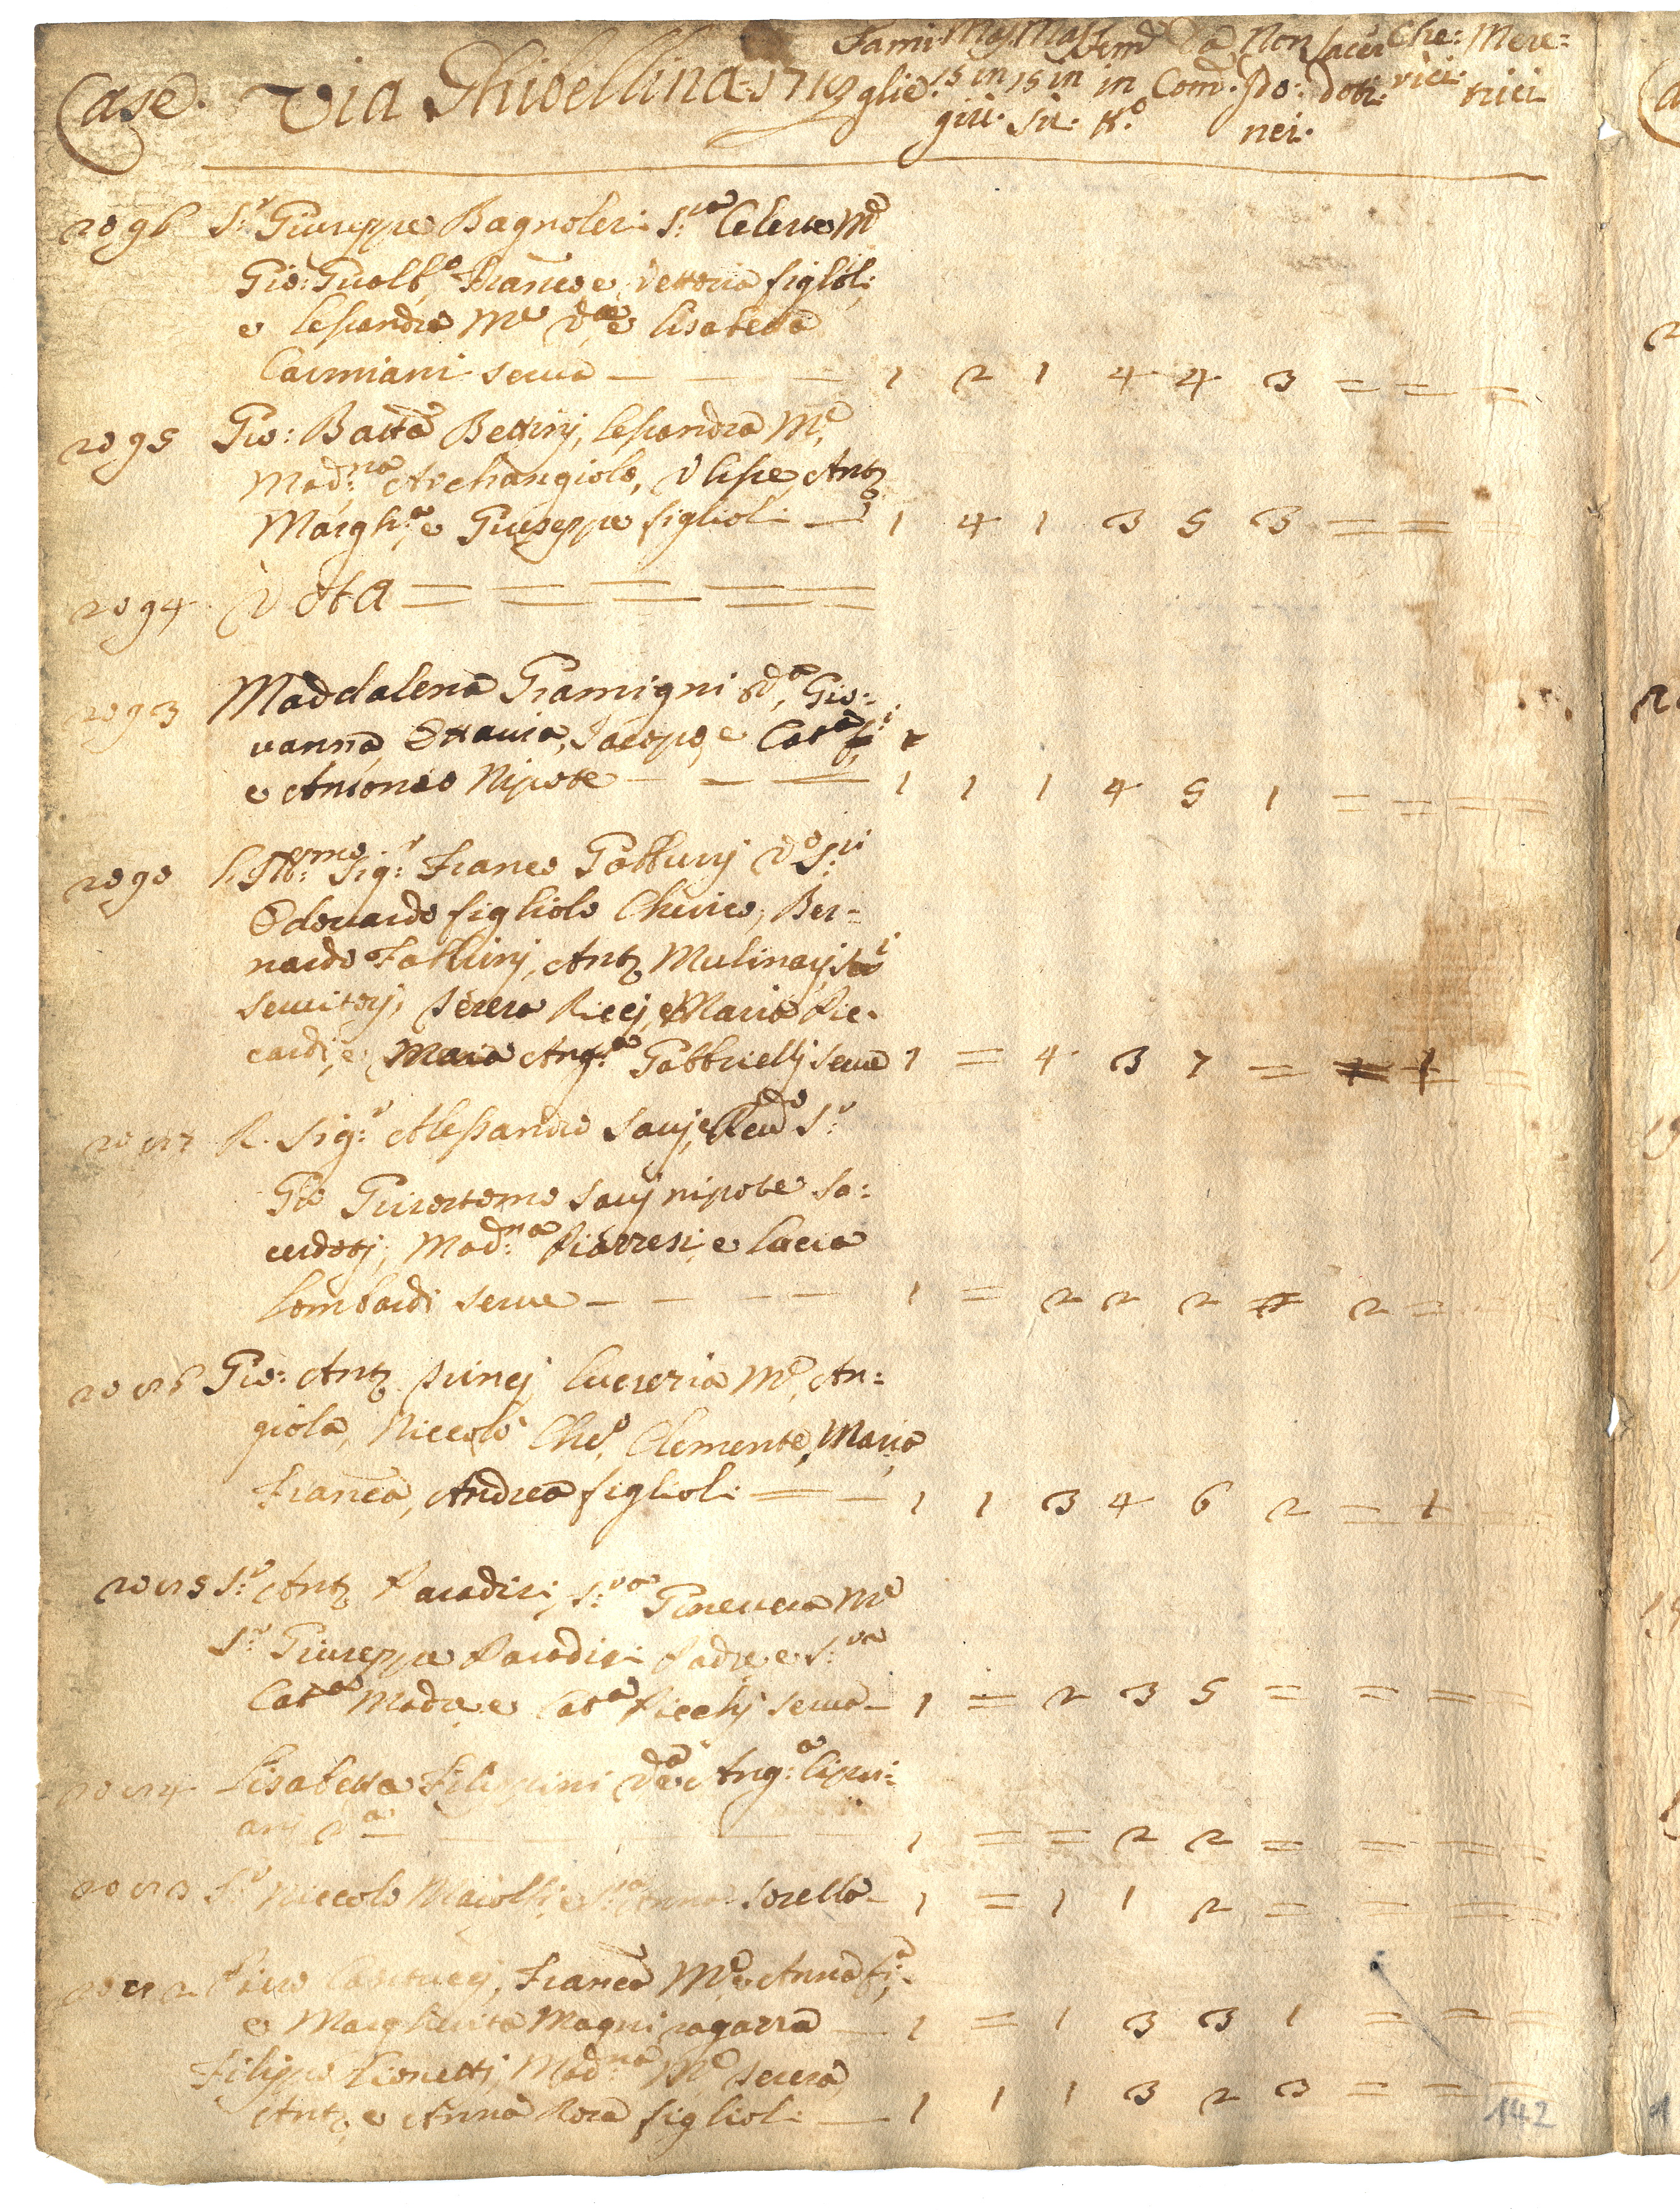 Case. Via Ghibellina 1719 Fami: glie. Mas. 15 in giù. Mas. 15 in sù. Fem. in tt.º Da Com.e Non Po: nei. Sacer doti. Che: rici. Mere= trici
2096 S.r Giuseppe Bagnolesi S.ra Celeste M.e
Gio: Gualb.o Franco e Vettoria figlioli
e Lessandra M.e V.a e Lisabetta
Carmiani serva — — — 1 2 1 4 4 3 = = =
2095 Gio: Batta Bettinj, Lessandra M.e,
Mad.na Archangiolo, Ulisse, Anto
Margh.ta e Giuseppe figlioli — 1 4 1 3 5 3 = = =
2094 Vota = = = = =
2093 Maddalena Gramigni Va, Gio=
vanna, Ottavia, Jacopo, e Cat.a fi
e Antonio Nipote — — — 1 1 1 4 5 1 = = = =
2090 L'Ill.mo Sig.r Franco Gabburrj V.o S.ri
Odoardo figliolo Cherico, Ber=
nardo Fabbrinj, Anto Mulinarj
servitorj, Teresa Riccj, e Maria Ric=
cardi, e Maria Ang.a Gabbriellj serve 1 = 4 3 7 = = 1 =
2087 R. Sig.r Alessandro Savj, e Rev.do S.r
Gio Grisostomo Savj nipote Sa=
cerdotj, Mad.na Piazzesi, e Lucia
Lombardi serve — — — — 1 = 2 2 2 = 2 = =
2086 Gio: Anto Puncj, Lucrezia M.e, An=
giola, Niccolò Che.o, Clemente, Maria
Franca, Andrea figlioli = — 1 1 3 4 6 2 = 1 =
2085 S.r Anto Paradisi, S.ra Ginevera M.e
S.r Giuseppe Paradisi Padre e S.ra
Cat.a Madre e Cat.a Picchj serva — 1 = 2 3 5 = = = =
2084 Lisabetta Filippini Va e Ang.a Cipri=
anj V.a — — — 1 = = 2 2 = = = =
2083 S.r Niccolo Maiolfi e S.ra Anna sorella — 1 = 1 1 2 = = = =
2082 Piero Castruccj, Franca M.e e Anna fi.a
e Margherita Magni ragazza — 1 = 1 3 3 1 = = =
Filippo Lionettj, Mad.na M.e Teresa
Anto e Anna Rosa figlioli — 1 1 1 3 2 3 = = =
142